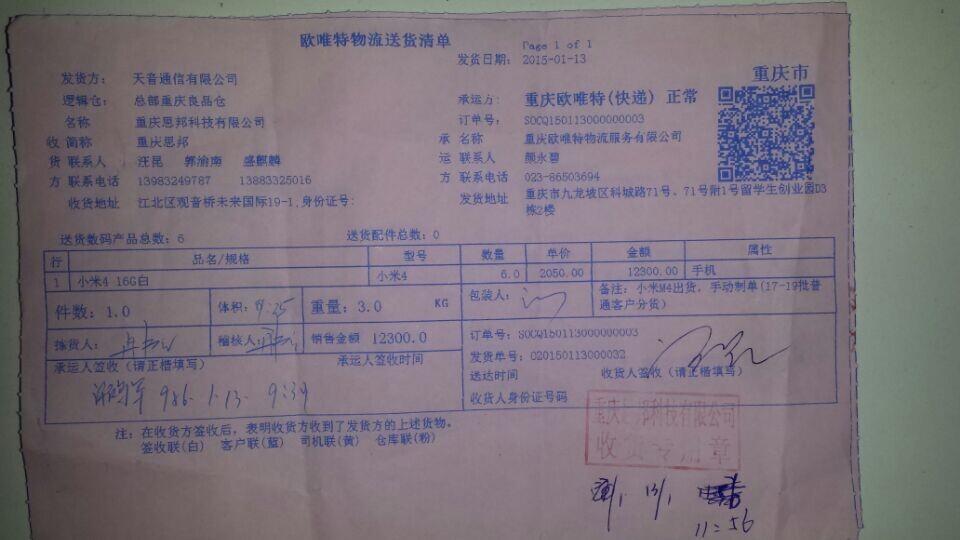 欧唯特物流送货清单
Page 1 of 1
发货日期: 2015-01-13
重庆市
发货方: 天音通信有限公司
逻辑仓: 总部重庆良品仓
承运方: 重庆欧唯特(快递) 正常
订单号: SOCQ150113000000003
名称 重庆思邦科技有限公司
收 简称 重庆思邦
承 名称 重庆欧唯特物流服务有限公司
货 联系人 汪昆 郭渝南 盛麒麟
运 联系人 颜永碧
方 联系电话 13983249787 13883325016
方 联系电话 023-86503694
收货地址 江北区观音桥未来国际19-1,身份证号:
发货地址 重庆市九龙坡区科城路71号、71号附1号留学生创业园D3栋2楼
送货数码产品总数: 6 送货配件总数: 0
行 品名/规格 型号 数量 单价 金额 属性
1 小米4 16G白 小米4 6.0 2050.00 12300.00 手机
件数: 1.0 体积: 重量: 3.0 KG 包装人:
备注: 小米M4出货, 手动制单(17-19批普通客户分货)
拣货人: 稽核人: 销售金额 12300.0
订单号: SOCQ150113000000003
发货单号: 020150113000032
承运人签收 (请正楷填写) 承运人签收时间
送达时间 收货人签收 (请正楷填写)
收货人身份证号码
1.13. 9:39
重庆思邦科技有限公司
收货专用章
注: 在收货方签收后, 表明收货方收到了发货方的上述货物。
签收联(白) 客户联(蓝) 司机联(黄) 仓库联(粉)
11:56